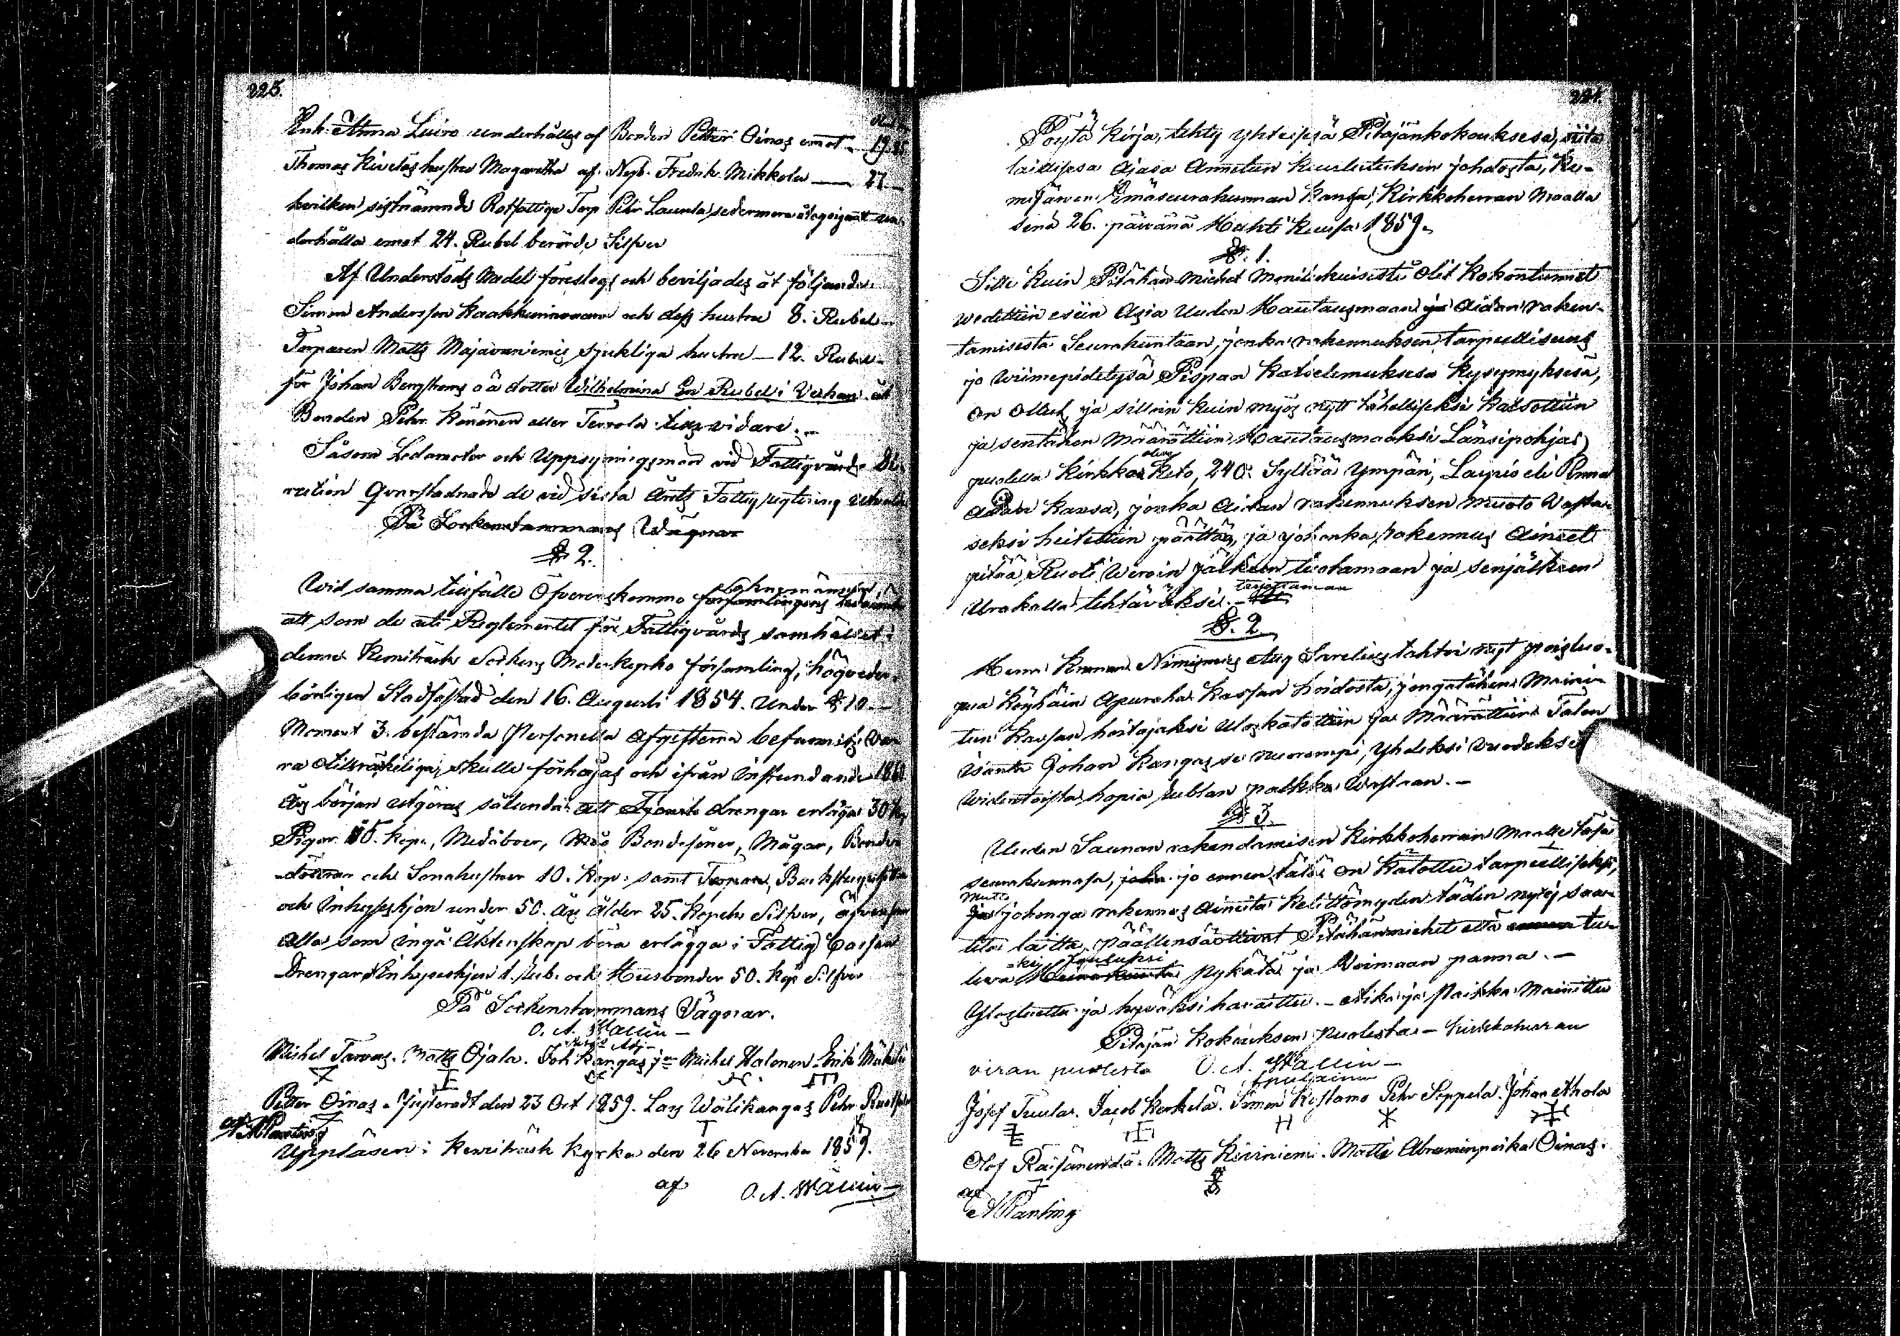 225.
Enk. Anna Luiro underhålles af Bonden Petter Oinas emot 19.
Thomas Kivelas hustru Magaretha af Nyb. Fredrik Mikkola — 27 —
hvilken sistnämnde Rotfattige Torp. Pehr Launla sedermera
derhålla emot 24. Rubel berörde Silfver
Af Understöds Medel föreslogs och beviljades åt följande:
Simon Andersson Kaakkurivaara och dess hustru 8. Rubel
Torparen Matts Majavaniemis sjukliga hustru — 12. Rubel
för Johan Bergströms oä dotter Wilhelmina En Rubel i Veckan åt
Bonden Pehr Könönen eller Terrola tills vidare. —
Såsom Ledamöter och Uppsyningsmän vid Fattigvårds Di-
rection qvarstadnade de vid sista årets Fattig
På Sockenstämmans Vägnar
§ 2.
Wid samma tillfälle öfverenskommo Socknemännen
att som de uti Reglementet för Fattigvårds samhället i
denna Kemiträsk Sockens Moderkyrko församling, högveder-
börligen Stadfästad den 16. Augusti 1854. Under § 10. —
Moment 3. bestämda Personella Afgifterna befunnits va-
ra otillräckliga, skulle förhöjas och ifrån instundande 1860
års början utgöras sålunda: att Tjenste drengar erlägga 30 k
Pigor 15. kop., Medåboer, Bondesöner, Mågar, Bonde-
döttrar och Sonahustrur 10. kop: samt Torpare,
och Inhyseshjon under 50. års ålder 25. kopek Silfver,
alla som ingå Äktenskap böra erlägga i Fattig Cassan
Drengar o Inhyseshjon 1. rub. och Husbonder 50. kop Silfver
På Sockenstämmans Vägnar.
O. A. Wallin —
Michel Tervas. Matts Ojala. Joh Kangas jr Michel Halonen. Erik Mäkelä
Petter Oinas. Justeradt den 23 Oct 1859. Lars Wälikangas Pehr
Uppläsen i Kemiträsk kyrka den 26 November 1859.
af O. A. Wallin —
Pöytä Kirja, tehty yhteisesä Pitäjänkokouksesa, siitä
laillisesa Ajasa Annetun kuulutuksen johdosta, Ke-
mijärven Emäseurakunnan kansa, Kirkkoherran Maalla
sinä 26. päivänä Huhti kuusa 1859.
§. 1.
Sitte kuin Pitäjän Miehet Monilukuisesti Olit kokontunnet
wedettiin esiin Asia Uuden Hautausmaan ja Aidan raken-
tamisesta Seurakuntaan, jonka rakennuksen tarpeellisuus
jo wiimepidetysä Pispan katselemuksesa kysymyksesä,
on ollut, ja silloin kuin myös nytt tähellliseksi katsottiin
ja sentähen määrättiin Hautausmaaksi Länsipohjas
puolella kirkkoa oleva Keto, 240. Syltää ympäri,
Aidan kansa, jonka Aidan rakennuksen Muoto Vasta-
seksi heitettiin päättää, ja johonka rakennus Aineet
pitää Ruoti wiroin jälkeen tuotamaan ja senjälkeen
Urakalla tehtäväksi. —
§. 2.
Herra Nimismies Aug Snellius tahtoi nyt poisluo-
pua köyhäin Apuraha Kassan hoidosta, jongatähen Maini-
tun Kassan hoitajaksi uloskatottiin ja Määrättiin Talon
isäntä Johan Kangas se nuorempi, yhdeksi vuodeksi
Widentoista hopia rublan palkka wastaan. —
§ 3.
Uuden Saunan rakendamisen Kirkkoherrain Maalle täsä
seurakunnasa, jo ennen tätä on katottu tarpeelliseksi,
Mutta johonga rakennus aineita kelittömyden täden nytej saa-
teta laitta. päällensäottivat Pitäjänmiehet että tu-
leva -ki Jouluksi pykätä ja Voimaan panna. —
Ylosluettu ja hyväksi havaittu. — Aika ja Paikka Mainittu
Pitäjän kokouksen Puolesta — kirkkoherran
viran puolesta O. A. Wallin —
Josef Tuula. Jacob Kerkelä. Simon Kostamo Pehr Seppälä Johan Ahola
Olof Räisänen. Matts Kiviniemi. Matti Abraminpoika Oinas.